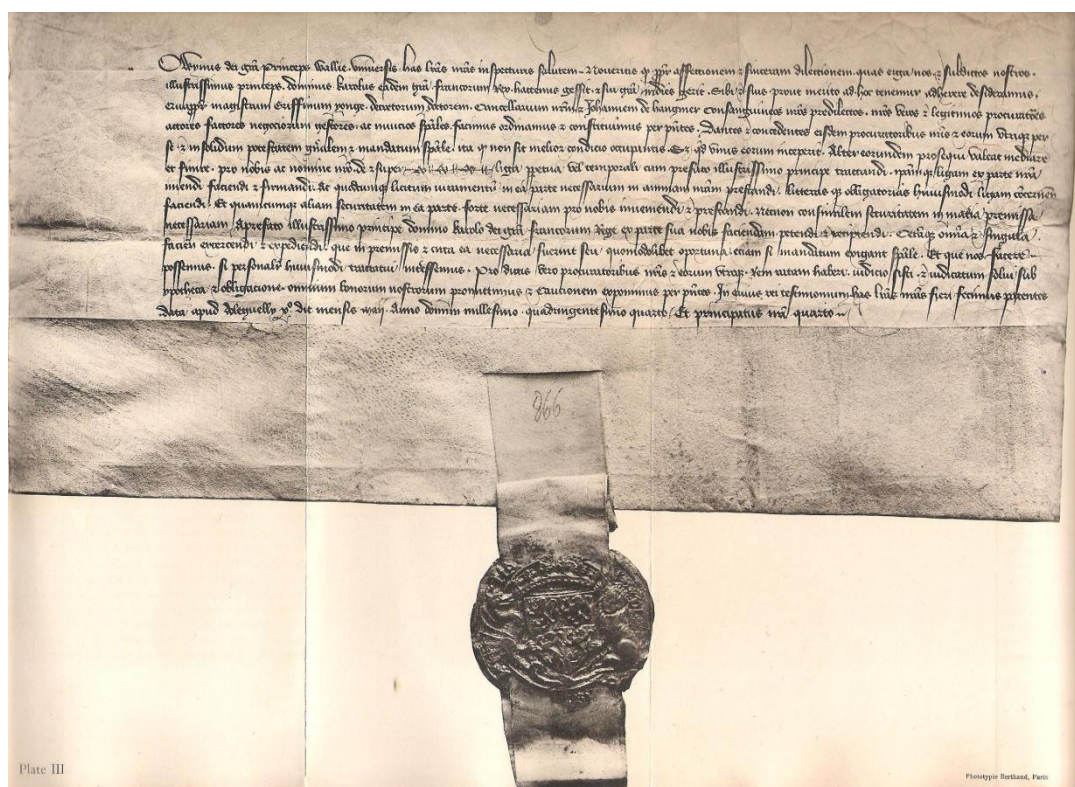 Owynus dei grã Princeps Wallie . Vniuersis has lr̃as nr̃as inspecturis salutem . Noueritis q̃ pp̃ter affectionem & sinceram dilectionem . quas erga nos & subditos nostros .
illustrissimus princeps dominus Karolus eadem grã francorum Rex hactenus gessit . & sui grã indies gerit . Sibi & suis prout merito ad hoc tenemur adherere desideramus .
magistrum Griffinum yonge . decretorum doctorem . Cancellarium nr̃m & Johannem de hangmer Consanguineos nr̃os predilectos . nr̃os veros & legitimos procuratores
actores factores negociorum gestores . ac nuncios sp̃ales facimus ordinamus & constituimus per p̃ntes . Dantes & concedentes eisdem procuratoribus nr̃is & eorum vtriq̃ per
se & insolidum potestatem gñalem & mandatum sp̃ale . ita q̃ non sit melior condicio occupantis . Set q̃d vnus eorum inceperit . Alter eorundem prosequi valeat mediare
et finire . pro nobis ac nomine nr̃o de & super liga ppetua vel temporali cum prefato illustrissimo principe tractandi . ip̃amq̃ ligam ex parte nr̃a
iniendi faciendi & firmandi . Ac quodcunq̃ licitum iuramentũ in ea parte necessarium in animam nr̃am prestandi . litteras q̃ obligatorias huiusmodi ligam
faciendi . Et quamcumq̃ aliam securitatem in ea parte . forte necessariam pro nobis inueniendi & prestandi . Necnon consimilem securitatem in mat̃ia premissa
necessariam . A prefato illustrissimo principe domino Karolo dei grã francorum Rege ex parte sua nobis faciendam petendi & recipiendi . Ceteraq̃ om̃ia & singula .
faciendi excercendi & expediendi . que in premissis & circa ea necessaria fuerint seu quomodolibet oportuna . etiam si mandatum exigant sp̃ale . Et que nos facere
possemus . si personalr̃ huiusmodi tractatui interessemus . Pro dictis vero procuratoribus nr̃is & eorum vtroq̃ . Rem ratam haberi . iudicio sisti . & iudicatum solui sub
ypotheca & obligacione . omnium bonorum nostrorum promittimus & Cautionem exponimus per p̃ntes . In cuius rei testimonium has lr̃as nr̃as fieri fecimus patentes
Data apud Doleguelly xº die mensis maij . Anno domini millesimo . quadringentesimo quarto . Et principatus nr̃i quarto
866
Plate III
Phototypie Berthaud, Paris